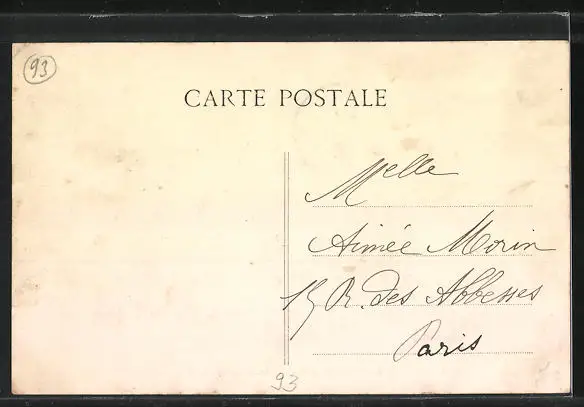 93
CARTE POSTALE
Melle
Aimée Morin
15 R. des Abbesses
Paris
93